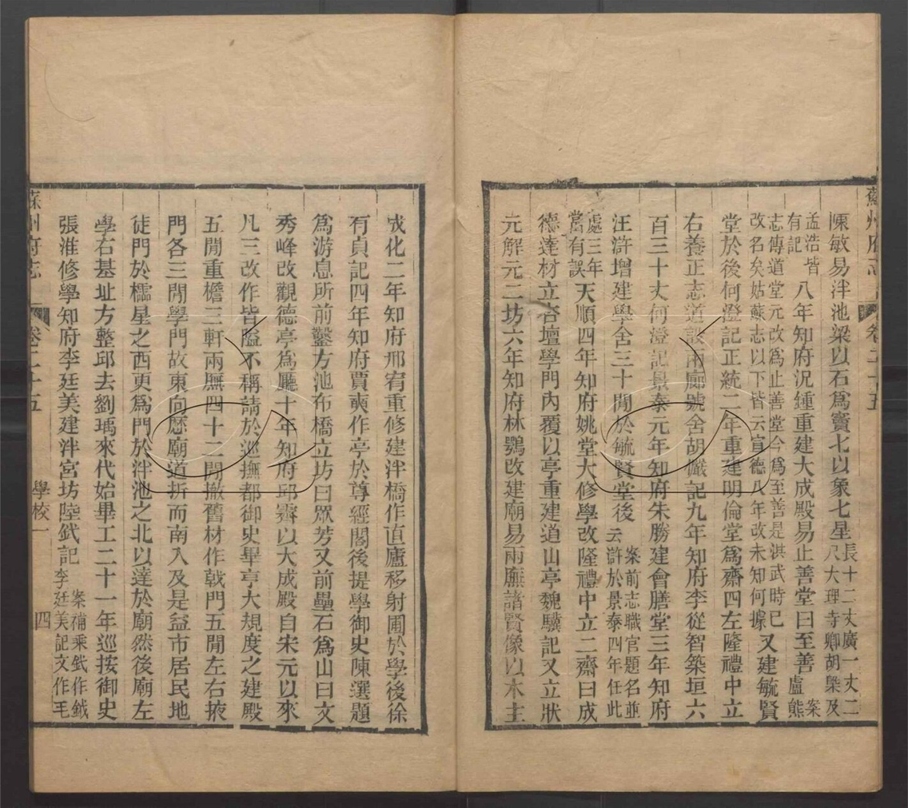 蘇州府志 卷二十五
陳敏易泮池梁以石爲竇七以象七星長十二丈廣一丈二尺大理寺卿胡槩及
孟浩皆有記八年知府況鍾重建大成殿易止善堂曰至善盧熊案
志傳道堂元改爲止善堂今爲至善是洪武時已改名矣姑蘇志以下皆云宣德八年改未知何據又建毓賢
堂於後何澄記正統二年重建明倫堂爲齋四左隆禮中立
右養正志道設兩廊號舍胡濙記九年知府李從智築垣六
百三十丈何澄記景泰元年知府朱勝建會膳堂三年知府
汪滸增建學舍三十間於毓賢堂後案前志職官題名並云滸於景泰四年任此
處三年當有誤天順四年知府姚堂大修學改隆禮中立二齋曰成
德達材立杏壇學門內覆以亭重建道山亭魏驥記又立狀
元解元二坊六年知府林鶚改建廟易兩廡諸賢像以木主
成化二年知府邢宥重修建泮橋作直廬移射圃於學後徐
有貞記四年知府賈奭作亭於尊經閣後提學御史陳選題
爲游息所前鑿方池布橋立坊曰眾芳又前壘石爲山曰文
秀峰改觀德亭爲廳十年知府邱霽以大成殿自宋元以來
凡三改作皆隘不稱請於巡撫都御史畢亨大規度之建殿
五間重檐三軒兩廡四十二間撤舊材作戟門五間左右掖
門各三間學門故東向歷廟道折而南入及是益市居民地
徙門於櫺星之西更爲門於泮池之北以達於廟然後廟左
學右基址方整邱去劉瑀來代始畢工二十一年巡按御史
張淮修學知府李廷美建泮宮坊陸釴記案稿乘釴作鉞李廷美記文作毛
蘇州府志 卷二十五 學校一 四